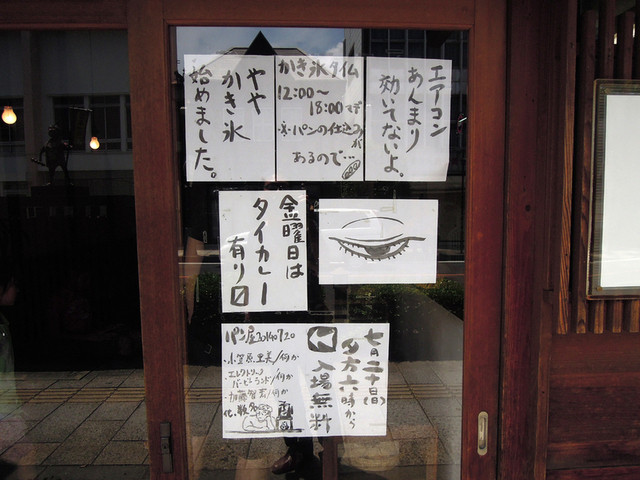 エアコン
あんまり
効いてないよ。
かき氷タイム
12:00〜
18:00マデ
パンの仕込みが
あるので…
やや
かき氷
始めました。
金曜日は
タイカレー
有り〼
七月二十日(日)
夕方六時から
入場無料
パン屋20140720
・小笠原里美/何か
エレクトリック
バービーランド/何か
・加藤智秀/何か